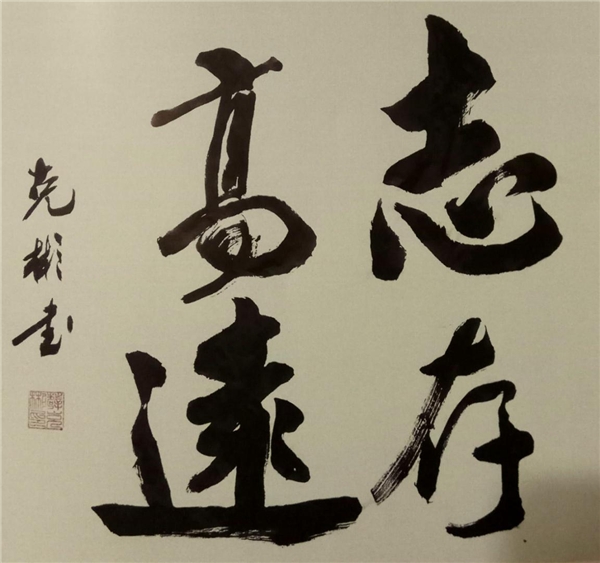 志存
高遠
克彬书